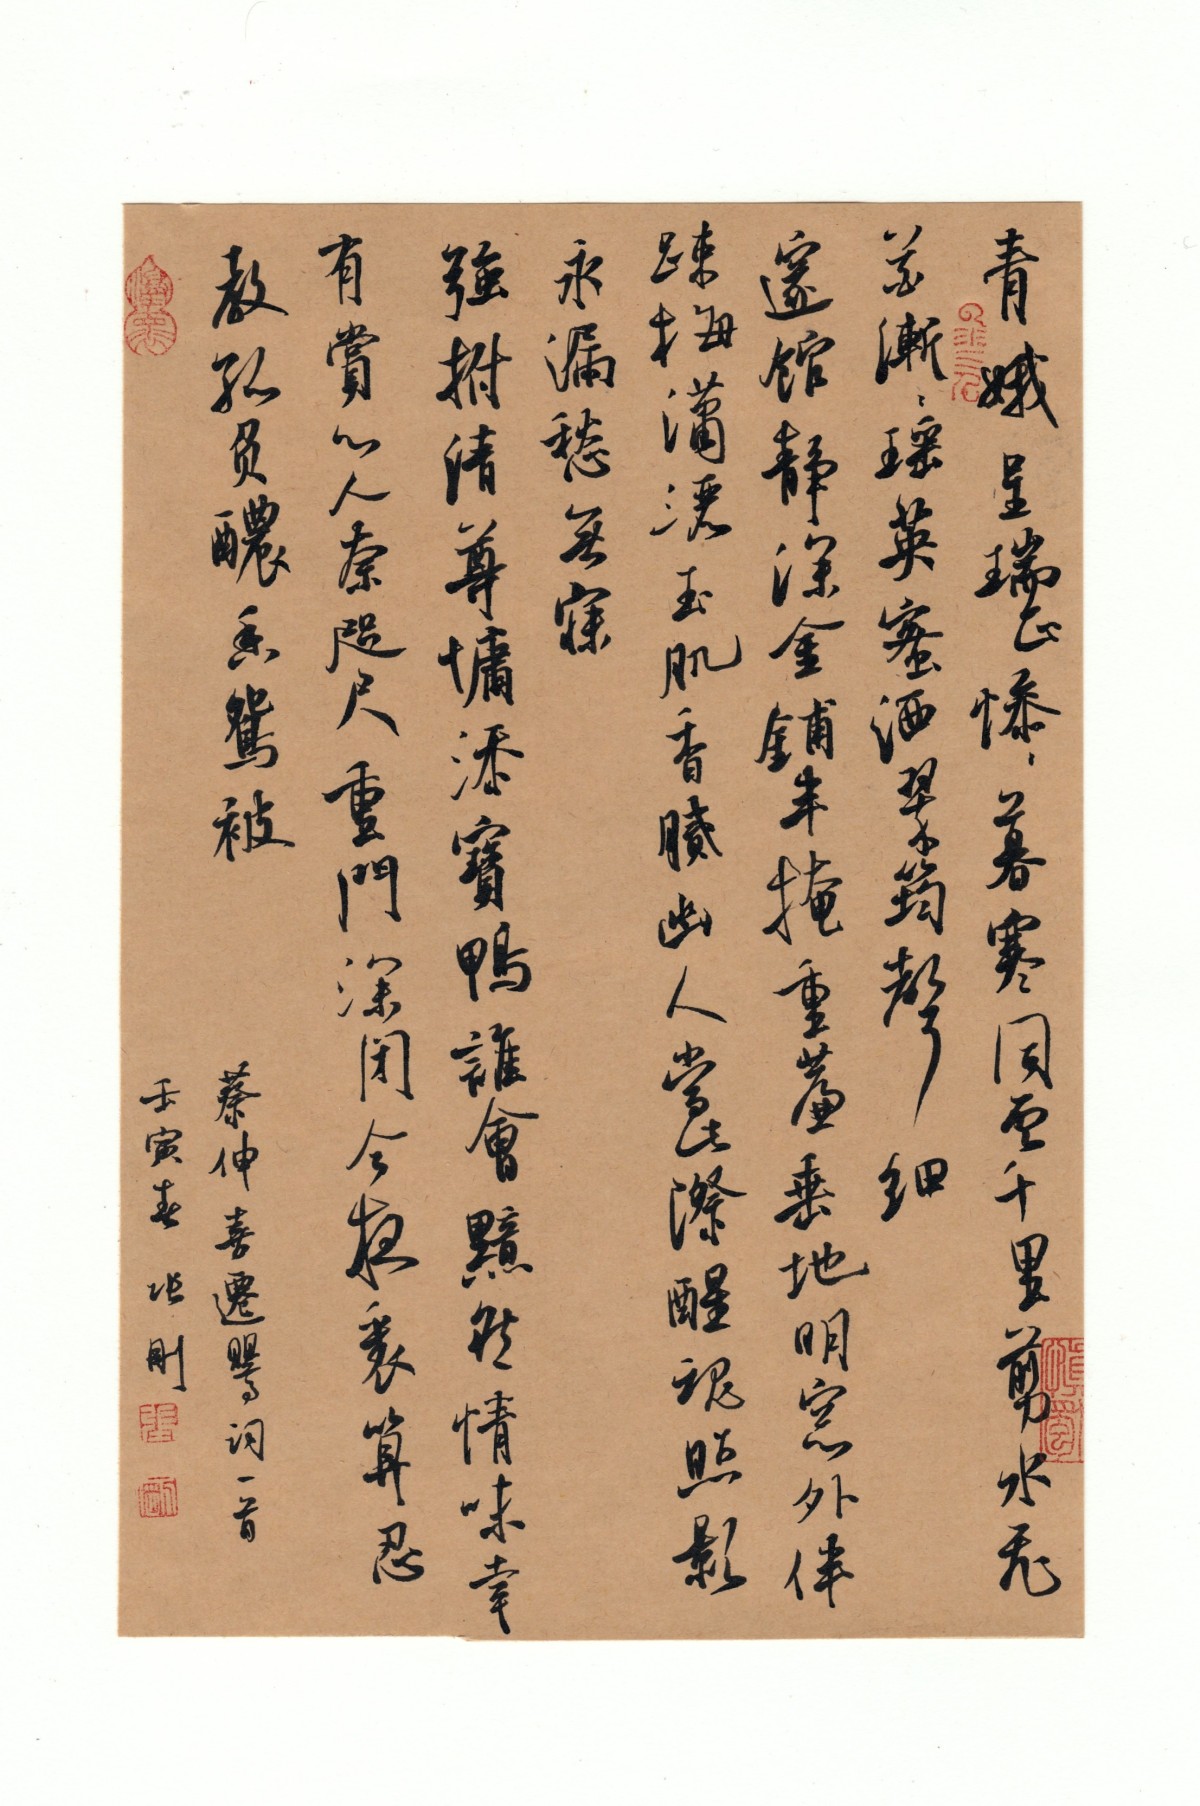 青娥呈瑞正慘〻暮寒同雲千里剪水飛
花漸〻瑶英密洒翠筠聲細
邃館靜深金鋪半掩重簾垂地明窓外伴
踈梅瀟灑玉肌香膩幽人當此際醒魂照影
永漏愁無寐
強拊清尊慵添寶鴨誰會黯然情味幸
有賞心人奈咫尺重門深閉今夜裏算忍
教孤負醲香鴛被
蔡伸喜遷鶯詞一首
壬寅春 張剛